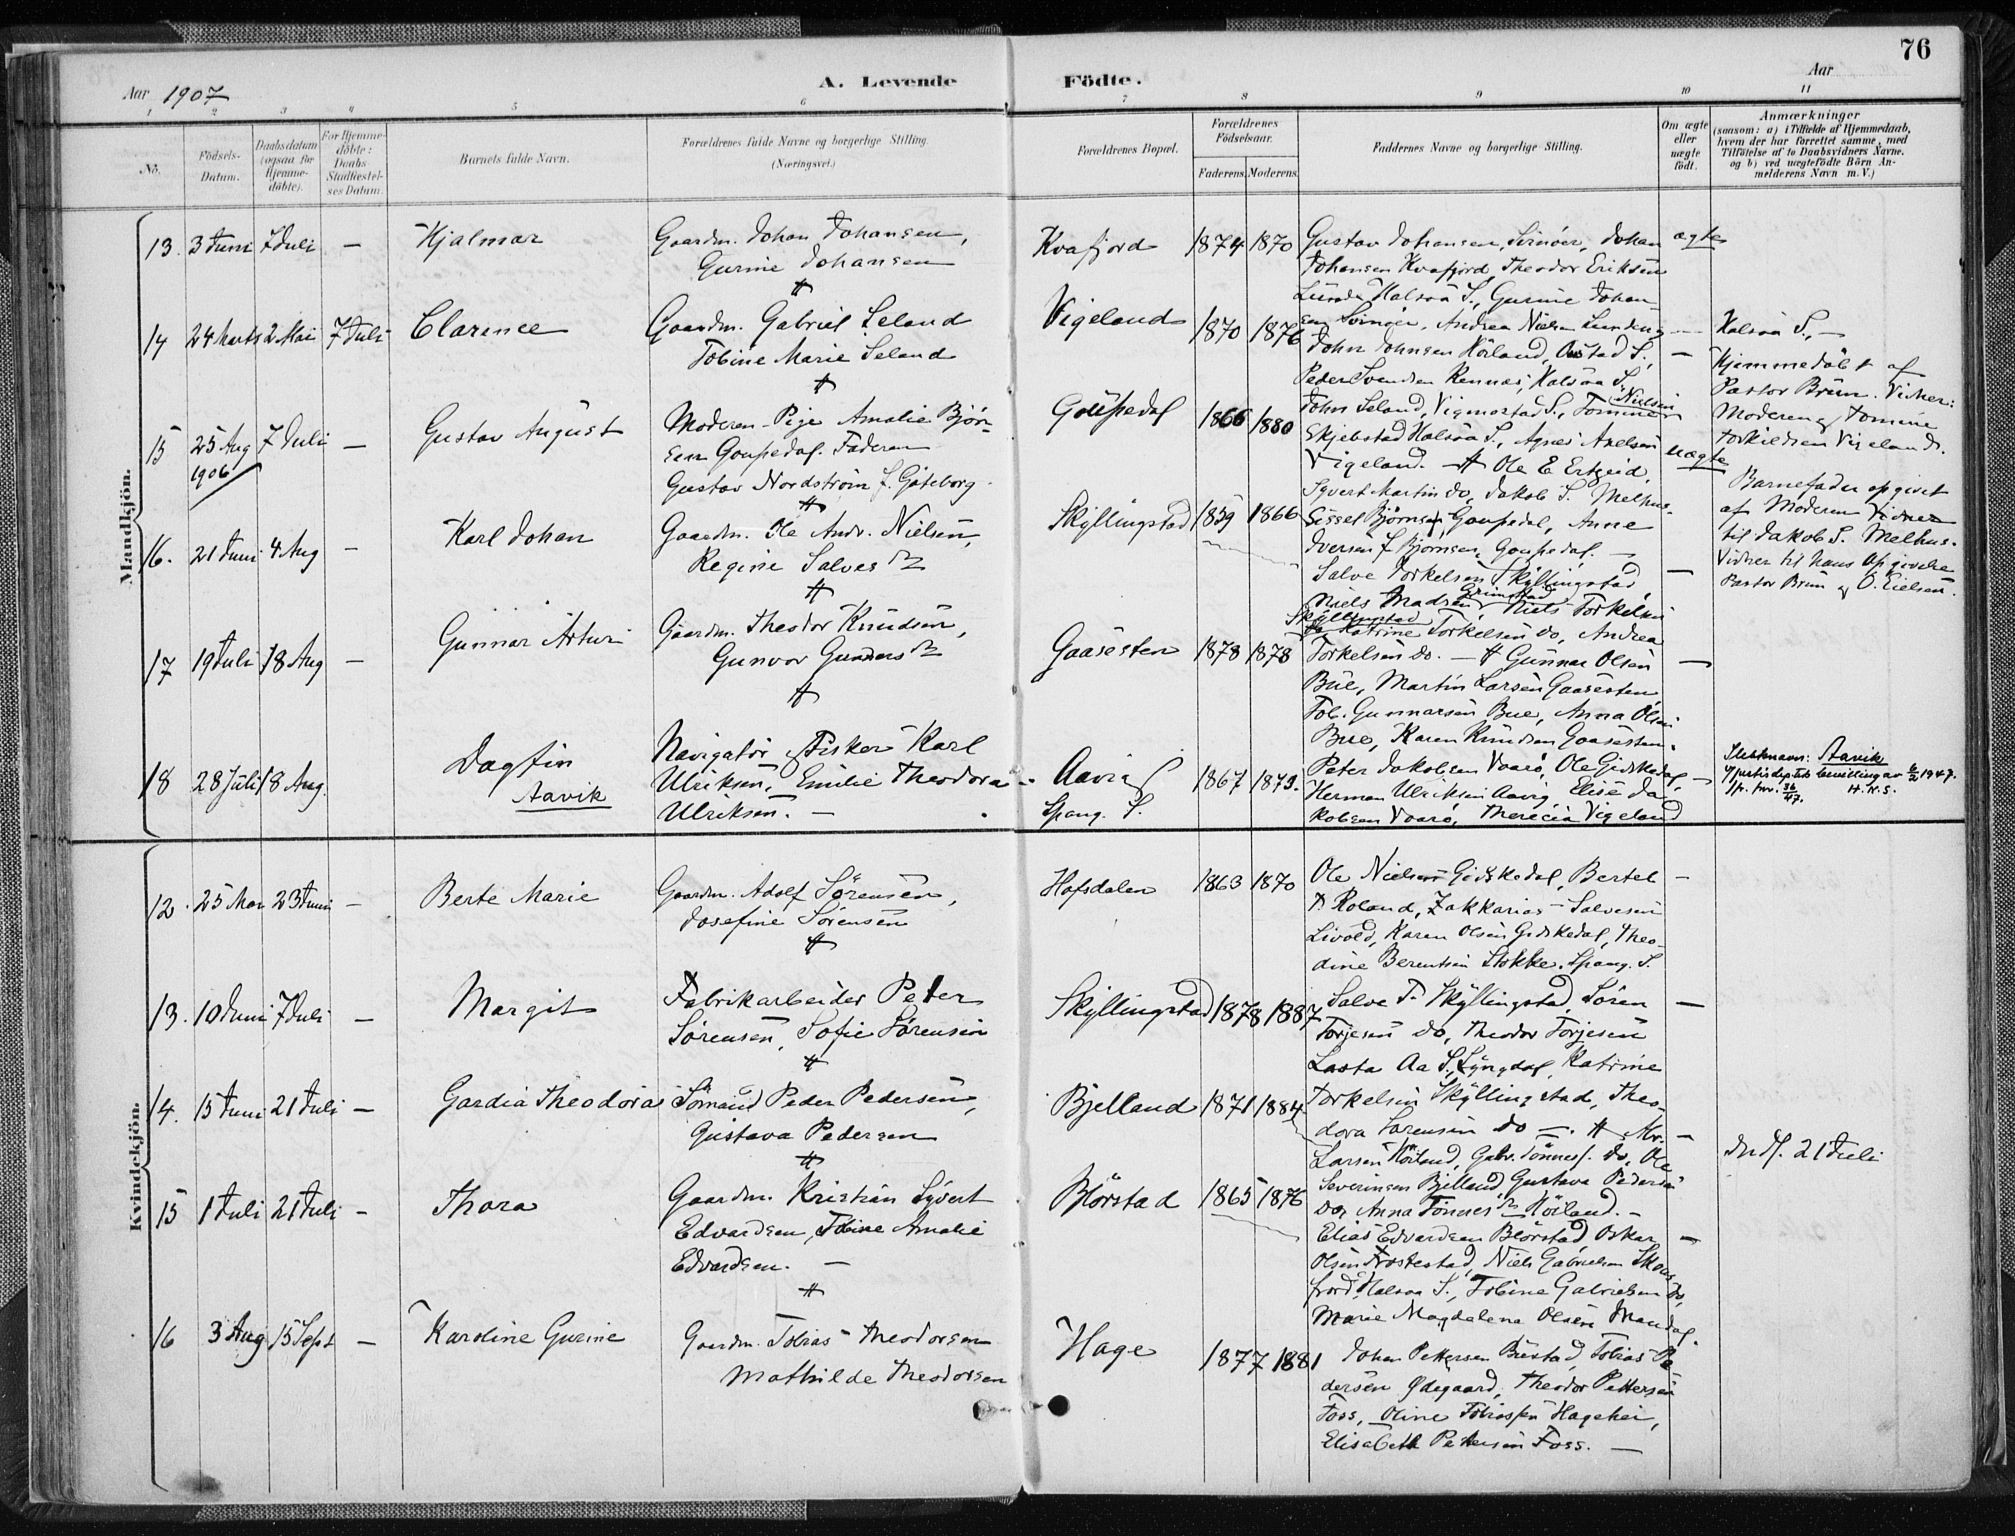 76
Aar 1907
A. Levende Födte.
Aar
1 2 3 4 5 6 7 8 9 10 11
No.
Födsels-Datum.
Daabsdatum (ogsaa for Hjemme-döbte).
For Hjemme-döbte: Daabs-Stadfæstel-ses Datum.
Barnets fulde Navn.
Forældrenes fulde Navne og borgerlige Stilling. (Næringsvei.)
Forældrenes Bopæl.
Forældrenes Födselsaar.
Faderens. Moderens.
Faddernes Navne og borgerlige Stilling.
Om ægte eller uægte födt.
Anmærkninger
(saasom: a) i Tilfælde af Hjemmedaab, hvem der har forrettet samme, med Tilföielse af to Daabsvidners Navne. og b) ved uægtefödte Börn An-melderens Navn m. V.)
Mandkjön.
13. 3 Juni 7 Juli – Hjalmar
Gaardm. Johan Johansen,
Gurine Johansen
Kvafjord 1874 1870
Gustav Johansen, Svinöer, Johan
Johansen Kvafjord, Theodor Eriksen
Lunde Halsaa S., Gurine Johan
sen Svinöer, Andrea Nielsen
ægte
Halsaa S., –
14 24 Marts 2 Mai 7 Juli Clarence
Gaardm. Gabriel Seland
Tobine Marie Seland
Vigeland 1870 1876
John Johnsen Hörland, S.,
Peder Svendsen Rennes, Halsaa S.
John Seland, Vigmostad S., Tomine Nielsen
Skjebstad Halsaa S., Agnes Axelsen
Vigeland. –
Hjemmedöbt af
Pastor Brun. Vidner:
Moderen og Tomine
Torkildsen Vigeland.
15 25 Aug 1906 7 Juli – Gustav August
Moderen – Pige Amalie Björn-
sen Goupedal. Faderen
Gustav Nordström f. Göteborg
Goupedal 1866 1880
Ole E Ertzeid,
Syvert Martin do, Jakob S. Melhus
Sissel Björnsen, Goupedal, Anne
Iversen f Bjornsen Goupedal. –
uægte
Barnefader opgivet
af Moderen Vidner
til Jakob S. Melhus.
Vidner til hans Opgivelse
Pastor Brun og O. Eielsen.
16. 21 Juni 4 Aug – Karl Johan
Gaardm. Ole Andr. Nielsen,
Regine Salvesdr
Skyllingstad 1859 1866
Salve Torkelsen Skyllingstad
Niels Madsen Grimestad Niels Torkelsen
Skyllingstad Katrine Torkelsen do, Andrea
Torkelsen do. –
17 19 Juli 18 Aug – Gunnar Artur
Gaardm. Theodor Knudsen,
Gunvor Gundersdr
Gaasesten 1878 1878
Gunnar Olsen
Bue, Martin Larsen Gaasesten
Tob. Gunnarsen Bue, Anna Olsen
Bue, Karen Knudsen Gaasesten.
18 28 Juli 18 Aug. Dagfin
Aavik
Navigatør Fisker Karl
Ulriksen, Emilie Theodora
Ulriksen. –
Aavig
Spang. S. 1867 1873.
Peter Jakobsen Vaarø, Ole Gidskedal,
Herman Ulriksen Aavig Elise Ja
kobsen Vaarø, Therecia Vigeland
Slektsnavn: Aavik
justisdeptets bevilling av 6/2 1947.
H. N. S.
Kvindekjön.
12. 25 Mai 23 Juni – Berte Marie
Gaardm. Adolf Sörensen,
Josefine Sörensen
Hofsdalen 1863 1870
Ole Nielsen Gidskedal, Bertel
T. Roland, Zakkarias Salvesen
Livold, Karen Olsen Gidskedal, Theo-
dine Berentsen Stokke. Spang. S.
13. 10 Juni 7 Juli – Margit
Fabrikarbeider Peder
Sörensen, Sofie Sörensen
Skyllingstad 1878 1887
Salve T. Skyllingstad, Sören
Torjesen do, Theodor Torjesen
Lasta Aa S. Lyngdal, Katrine
Torkelsen Skyllingstad, Theo-
dora Sorensen do –.
14. 15 Juni 21 Juli – Gardia Theodora
Sömand Peder Pedersen,
Gustava Pedersen
Bjelland 1871 1884
Larsen Höiland, Gabr. Tönnes. do, Ole
Severinsen Bjelland, Gustava Pedersen
do, Anna Tönnesdr Höiland. –
Indf. 21 Juli
15 1 Juli 21 Juli – Thora
Gaardm. Kristian Syvert
Edvardsen, Tobine Amalie
Edvardsen. –
Blörstad 1865 1876
Elias Edvardsen Blörstad Oskar
Olsen Frostestad, Niels Gabrielsen Skons
frord, Halsaa S., Tobine Gabrielsen do,
Marie Magdalena Olsen Mandal.
16 3 Aug 15 Sept – Karoline Gurine
Gaardm. Tobias Theodorsen
Mathilde Theodorsen
Hage 1877 1881
Johan Pettersen Buestad, Tobias Pe
dersen Ødegaard, Theodor Pettersen
Foss, Oline Tobiassen Hagehei,
Elisabeth Pettersen Foss. –